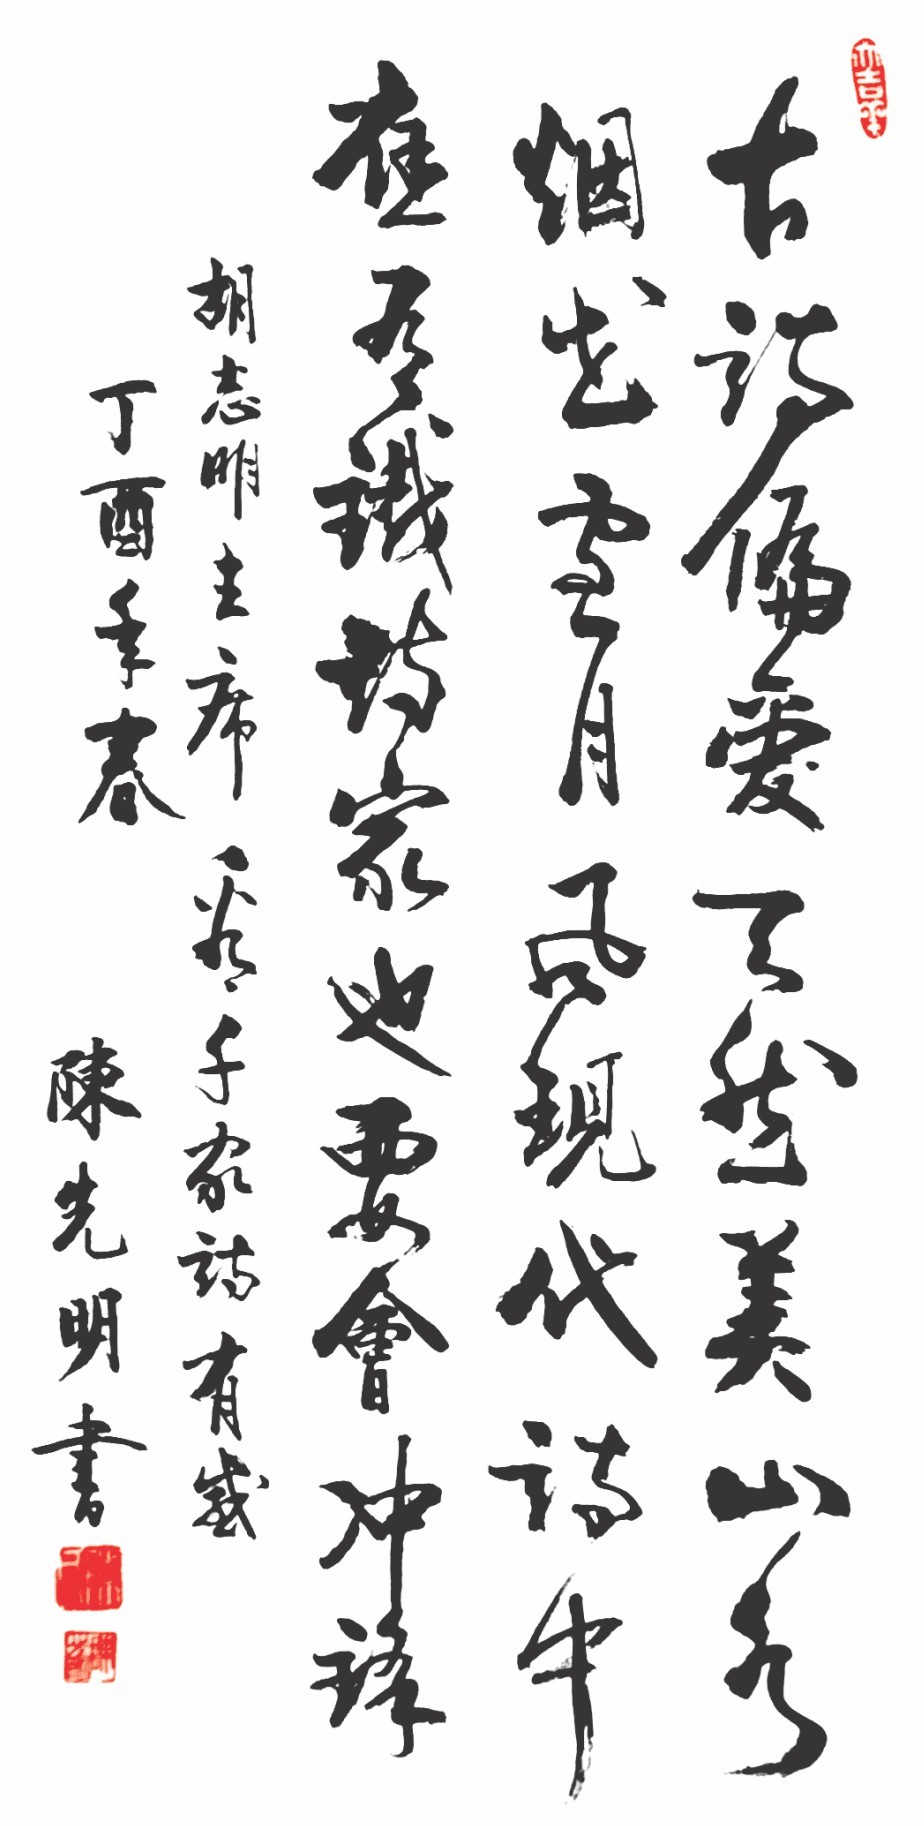 大吉羊
古詩偏愛天然美山水
烟花雪月风現代詩中
應有鐵詩家也要會冲鋒
胡志明主席看千家詩有感
丁酉年春 陳先明書